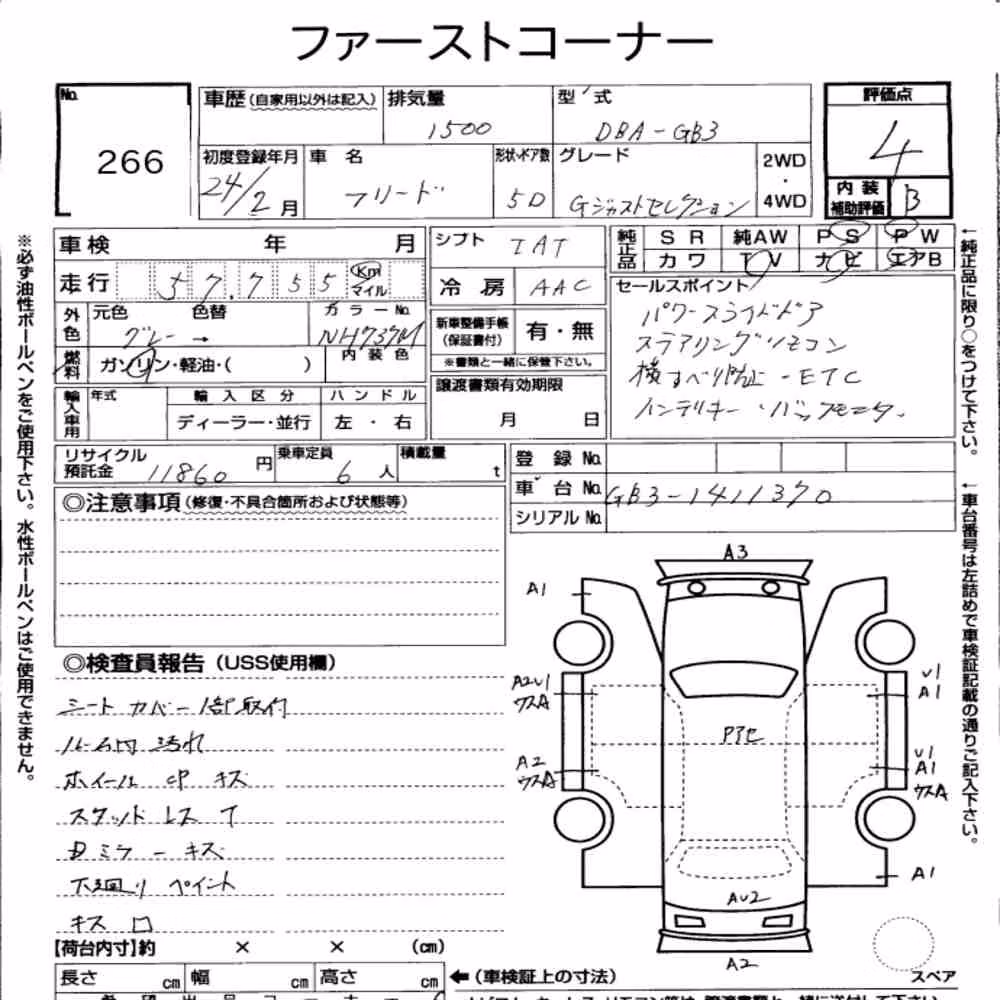 ファーストコーナー
No. 266
車歴(自家用以外は記入) 排気量 1500 型式 DBA-GB3
初度登録年月 24/2月 車名 フリード 形状・ドア数 5D グレード Gジャストセレクション 2WD・4WD
評価点 4
内装補助評価 B
車検 年 月
走行 57,755 Km マイル
外色 元色 グレー → 色替 カラーNo. NH737M
燃料 ガソリン・軽油・( ) 内装色
輸入車用 年式 輸入区分 ディーラー・並行 ハンドル 左・右
シフト IAT
冷房 AAC
新車整備手帳(保証書付) 有・無
※書類と一緒に保管下さい。
譲渡書類有効期限
月 日
純正品 SR 純AW PS PW
カワ TV ナビ エアB
セールスポイント
パワースライドドア
ステアリングリモコン
横すべり防止-ETC
インテリキー・バックモニター
リサイクル預託金 11860円 乗車定員 6人 積載量 t
登録No.
車台No. GB3-1411370
シリアルNo.
◎注意事項(修復・不具合箇所および状態等)
◎検査員報告(USS使用欄)
シートカバー1部取付
ルーム内 汚れ
ホイール CP キズ
スタッドレス T
Dミラーキズ
下廻り ペイント
キズ ロ
【荷台内寸】約 × × (cm)
長さ cm 幅 cm 高さ cm ←(車検証上の寸法)
A3
A1
A2U1
ウスA
U1
A1
Pアセ
A2
ウスA
U1
A1
ウスA
A1
AU2
A2
スペア
※必ず油性ボールペンをご使用下さい。水性ボールペンはご使用できません。
←純正品に限り○をつけて下さい。
←車台番号は左詰めで車検証記載の通りご記入下さい。